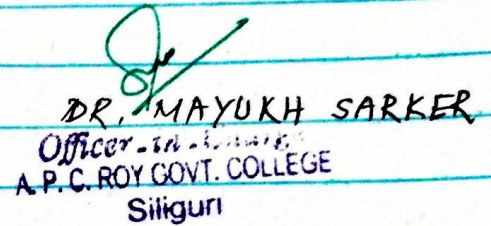 DR. MAYUKH SARKER
Officer-in-Charge
A. P. C. ROY GOVT. COLLEGE
Siliguri